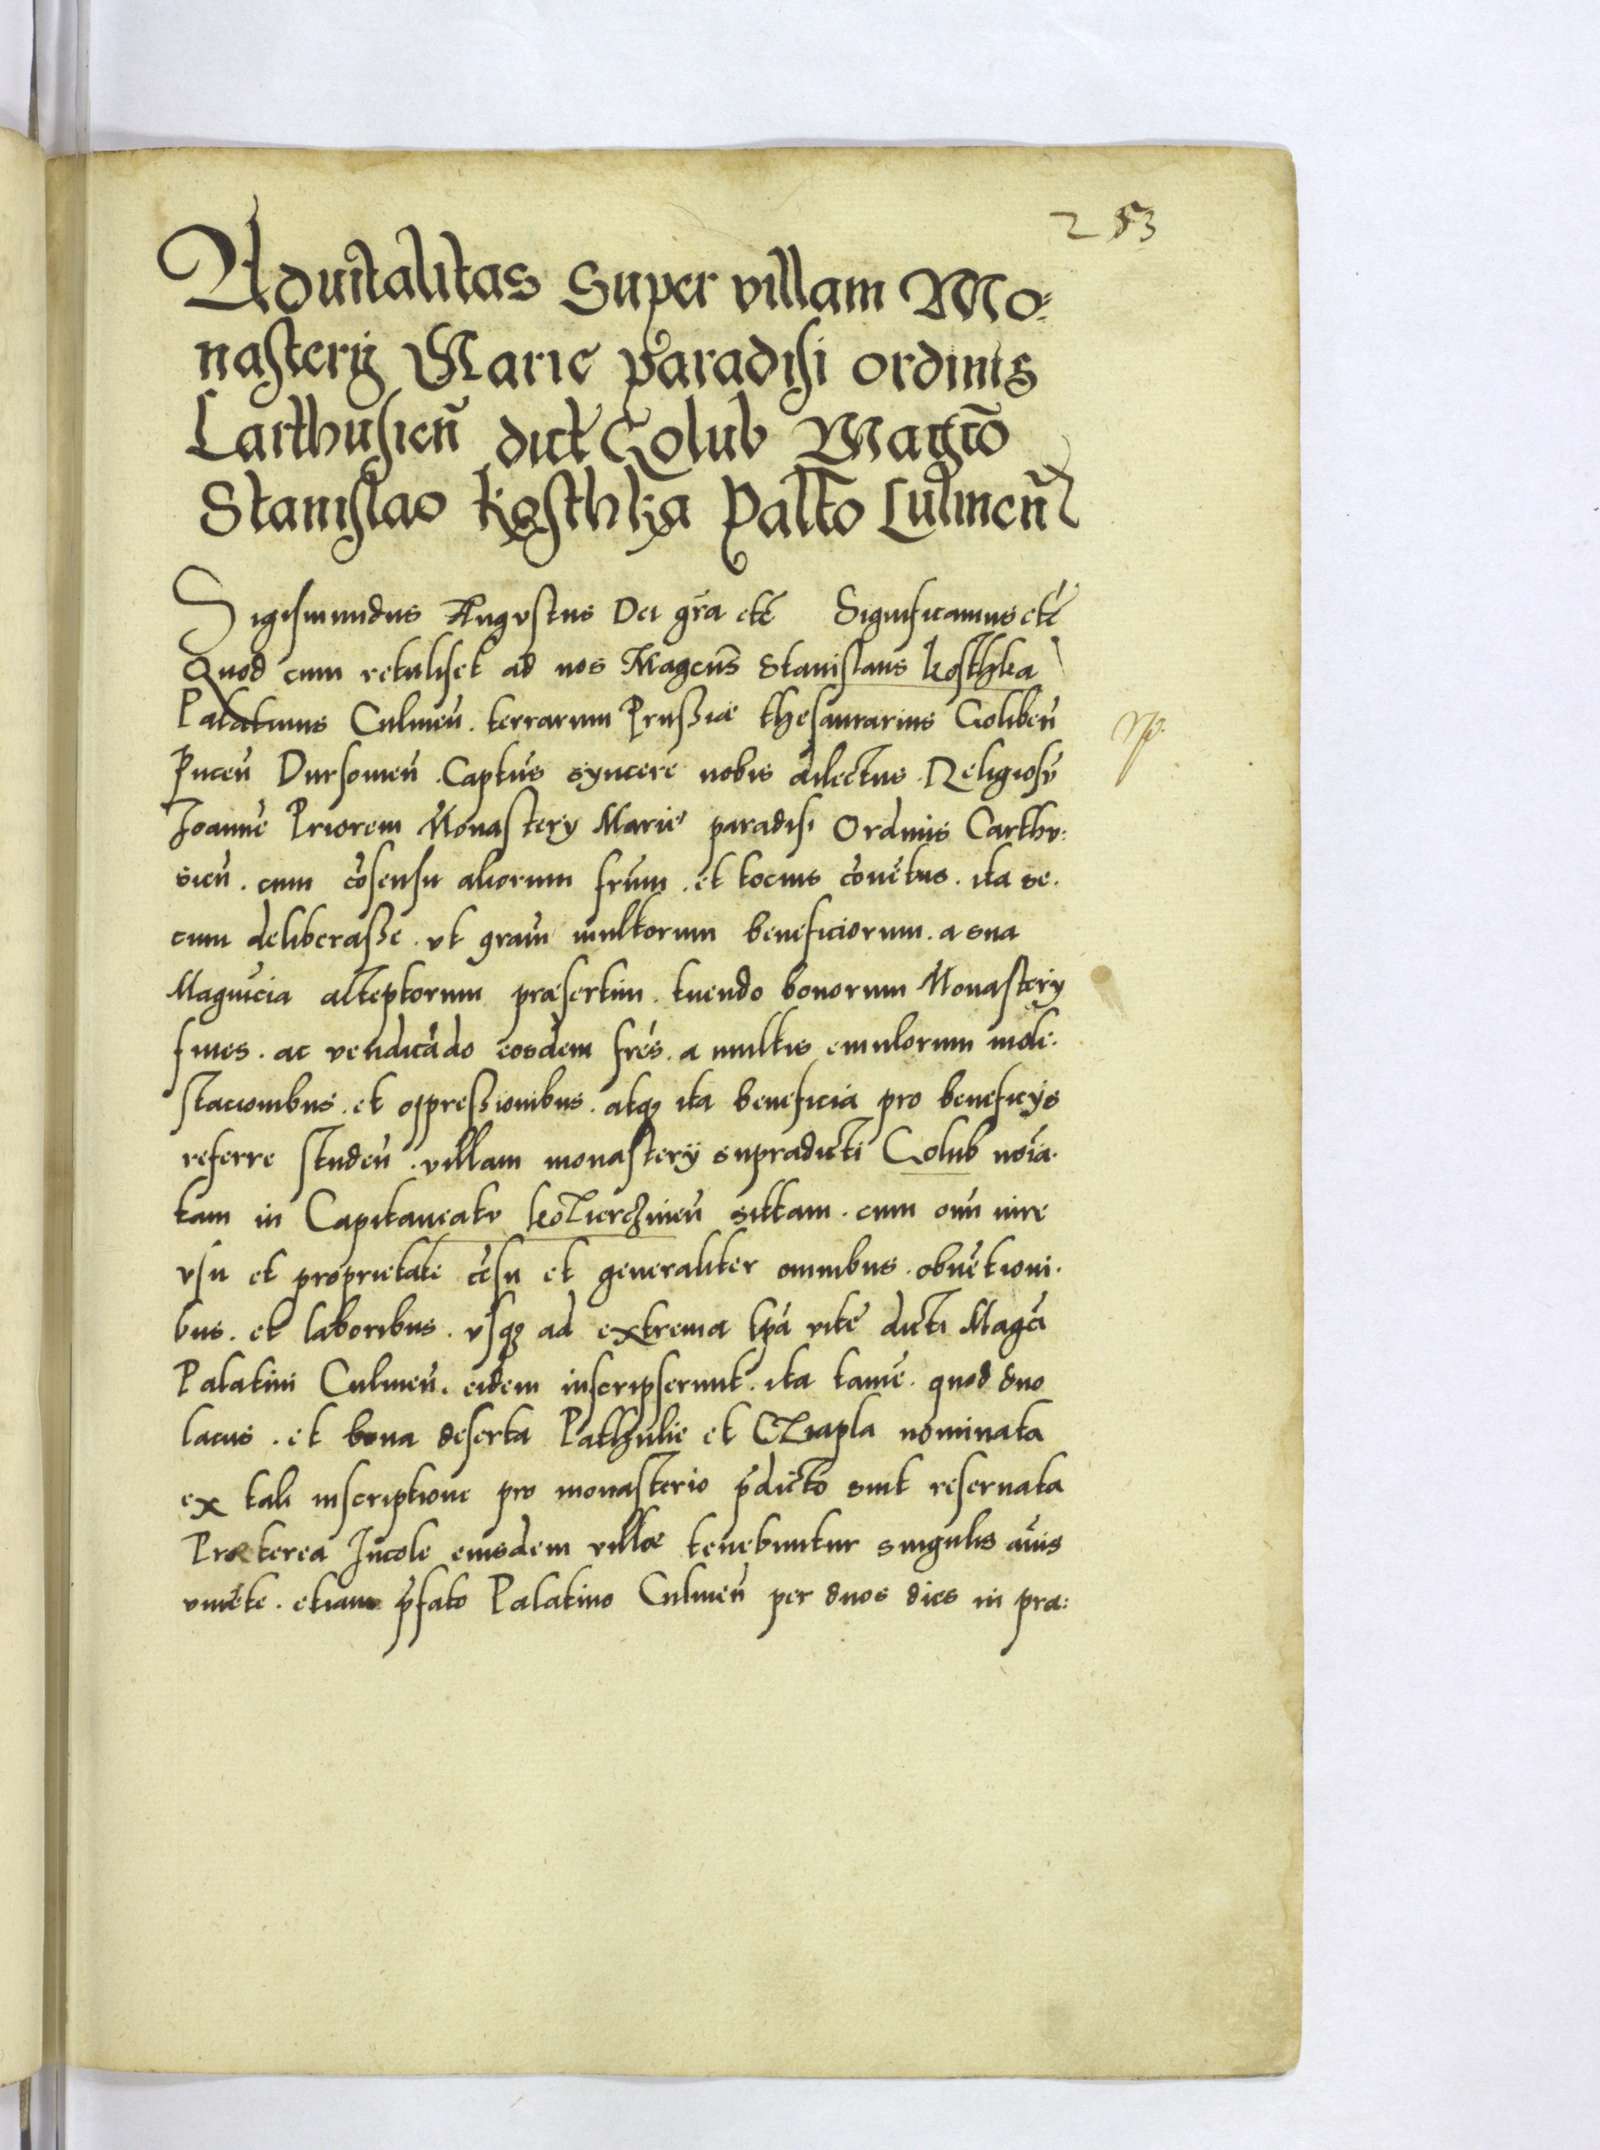 253
Aduitalitas Super villam Mo:
nasterÿ Marie paradisi ordinis
Carthusieñ dict Golub Magco
Stanislao Kosthka Palto Culmeñ
Sigismundus Augvstus Dei gra etc Significamus etc
Quod cum retuliset ad nos Magcus Stanislaus Kosthka
Palatinus Culmeñ. terrarum Prussiæ thesaurarius Golibeñ
Puceñ Dursomeñ. Captus syncere nobis dilectus. Religiosu
Joanne Priorem Monastery Marie paradisi Ordinis Carthv:
sieñ. cum cosensu aliorum frum. et tocius couetus. ita se.
cum deliberasse. vt gram multorum beneficiorum. a sua
Magnicia alteptorum præsertim. tuendo bonorum Monastery
fines. ac vendicado eosdem fres. a multis emulorum mole.
stacionibus. et oppressionibus. atq3 ita beneficia pro beneficÿs
referre studeñ. villam monasterÿ supradicti Golub noia.
tam in Capitaneatv Koszierczineñ sittam. cum omi iure
vsu et proprietate cesu et generaliter omnibus. obuetioni.
bus. et laboribus. vsq3 ad extrema tpa vite dicti Magci
Palatini Culmeñ. eidem inscripserunt. ita tame. quod duo
lacus. et bona deserta Pathulie et Cziapla nominata
ex tali inscriptione pro monasterio pdicto sint reseruata
Præterea Incole eiusdem villæ tenebuntur singulis anis
vniete. etiam pfato Palatino Culmeñ per duos dies in præ: